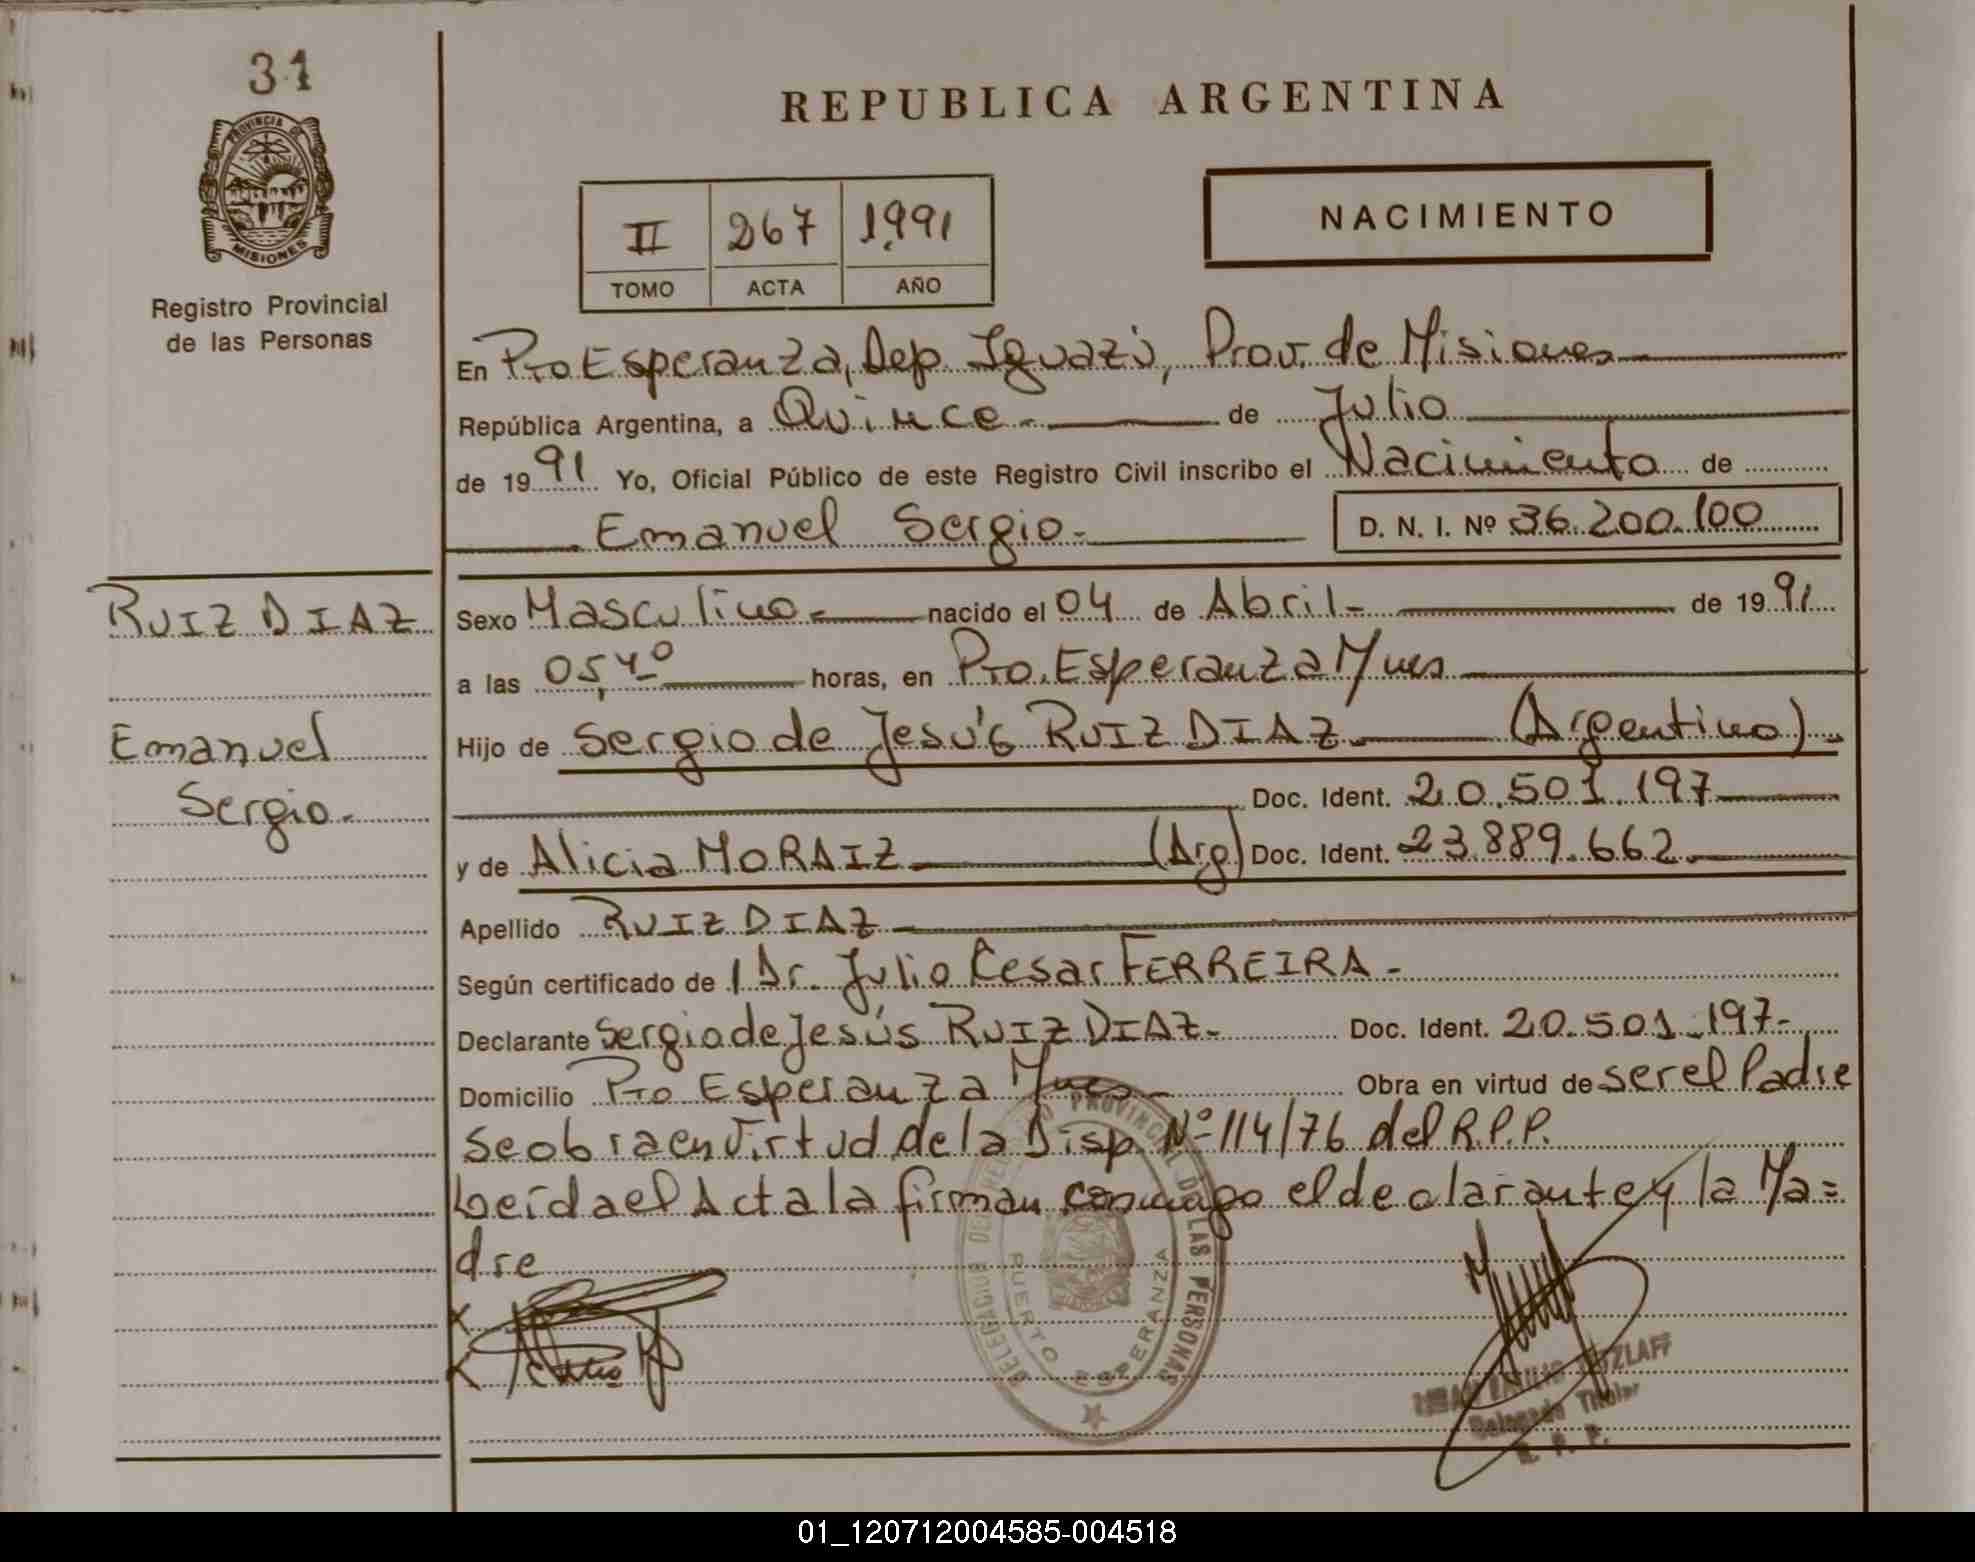 31
PROVINCIA DE
MISIONES
Registro Provincial
de las Personas
REPUBLICA ARGENTINA
II 267 1991
TOMO ACTA AÑO
NACIMIENTO
En Pto Esperanza, Dep. Iguazú, Prov. de Misiones
República Argentina, a Quince.- de Julio
de 1991 Yo, Oficial Público de este Registro Civil inscribo el Nacimiento de
Emanuel Sergio.-
D. N. I. Nº 36.200.100
RUIZ DIAZ
Emanuel
Sergio.-
Sexo Masculino.- nacido el 04 de Abril.- de 1991
a las 05,40 horas, en Pto. Esperanza Mnes
Hijo de Sergio de Jesús RUIZ DIAZ.- (Argentino)
Doc. Ident. 20.501.197
y de Alicia MORAIZ (Arg) Doc. Ident. 23.889.662.-
Apellido RUIZ DIAZ.-
Según certificado de l Dr. Julio Cesar FERREIRA.-
Declarante Sergio de Jesús RUIZ DIAZ.- Doc. Ident. 20.501.197-
Domicilio Pto Esperanza Mnes.- Obra en virtud de ser el Padre
se obra en virtud de la Disp. Nº 114/76 del R.P.P.
Leída el Acta la firman conmigo el declarante y la Ma=
dre
DELEGACION DEL REGISTRO PROVINCIAL DE LAS PERSONAS
PUERTO ESPERANZA
Delegado Titular
R. P. P.
01_120712004585-004518